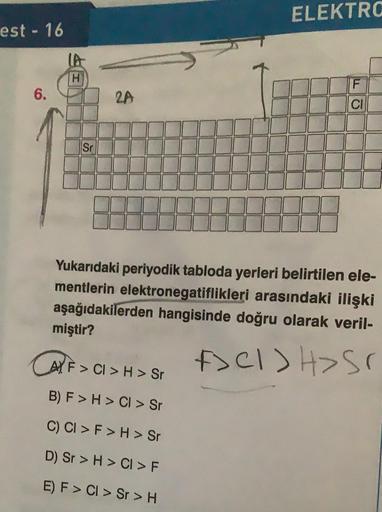 ELEKTRO
est - 16
1A
H
6.
2A
F
Cl
Sr
Yukarıdaki periyodik tabloda yerleri belirtilen ele-
mentlerin elektronegatiflikleri arasındaki ilişki
aşağıdakilerden hangisinde doğru olarak veril-
miştir?
A) F > Cl > H > Sr
F > Cl > H > Sr
B) F > H > Cl > Sr
C) Cl > F > H > Sr
D) Sr > H > Cl > F
E) F > Cl > Sr > H